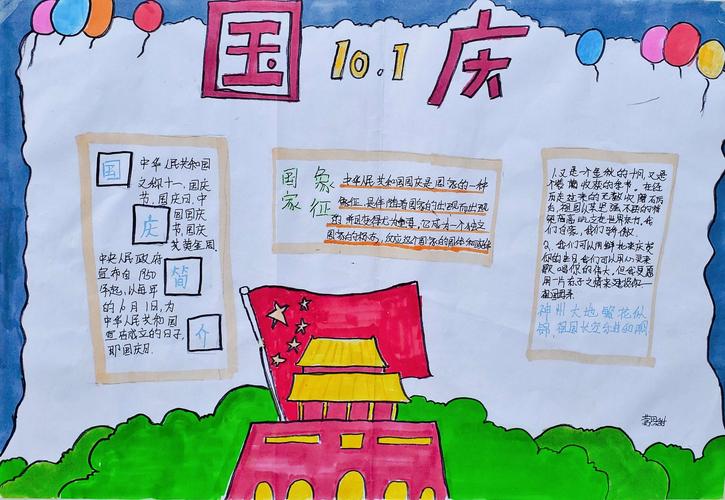 国 10.1 庆
国 中华人民共和国
又称十一、国庆
节、国庆日、中
庆 国国庆
节、国庆
黄金周.
中央人民政府
宣布自1950
年起,以每年
简
的 月1日,为
中华人民共和国
宣告成立的日子,
即国庆日.
介
国家
象征
中华人民共和国国庆是国家的一种
象征,是伴随着国家的出现而出现
的,并且变得尤为重要.它成为一个独立
国家的标志,反应这个国家的国体和政体
1.又是个金秋的十月,又是
个 收获的季节。在经
历走过来的无数次磨砺
后,祖国以其坚强不屈的脊
梁 屹立在世界东方,我
们自豪,我们骄傲.
2、我们可以用鲜花来庆祝
你的生日,我们可以用心灵来
歌唱你的伟大,但我更愿
用一片赤子之情来建设你—
—祖国母亲
神州大地繁花似
锦,祖国长空乐曲如潮.